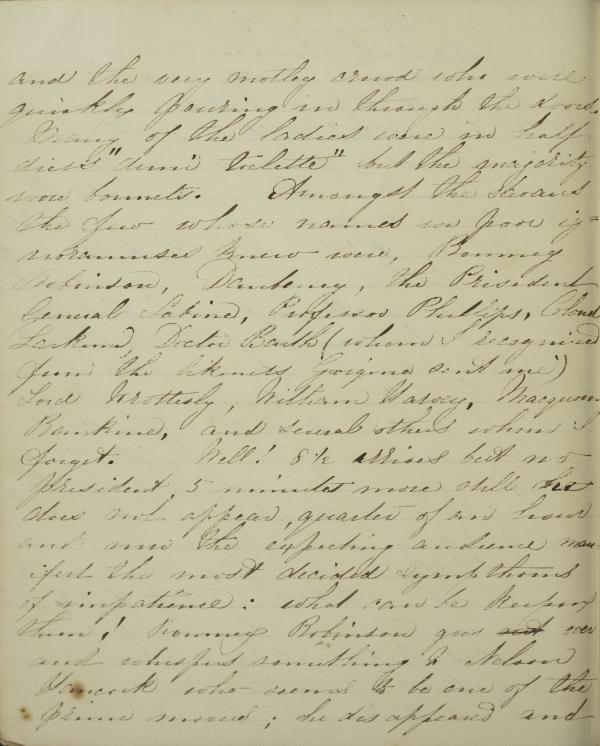 and the very motley crowd who were
quickly pouring in through the doors.
Many of the ladies were in half
dress "demi toilette" but the majority
wore bonnets. Amongst the savans
the few whose names we poor ig-
noramuses knew were, Romney
Robinson, Daubeney, the President
General Sabine, Professor Phillips, Colonel
Doctor Barth (whom I recognized
from the likeness Georgina sent me)
Lord Wrottesly, William Harvey, Macquorn
Rankine, and several others whom I
forget. Well! 8½ arrives but no
president, 5 minutes more still he
does not appear, quarter of an hour
and now the expecting audience man-
ifest the most decided sympthoms
of impatience: what can be keeping
them! Romney Robinson goes out over
and whispers something to Nelson
Hancock who seems to be one of the
prime movers; he disappeared and